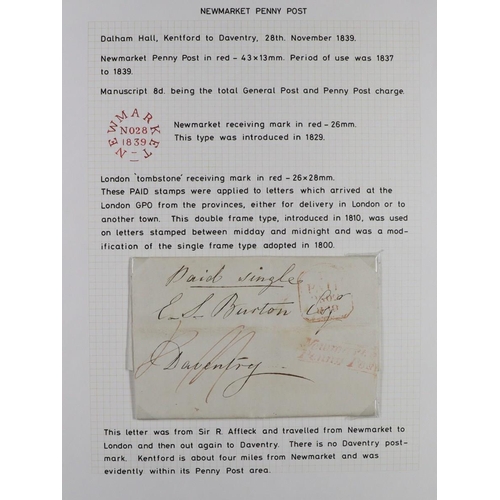 NEWMARKET PENNY POST
Dalham Hall, Kentford to Daventry, 28th. November 1839.
Newmarket Penny Post in red - 43x13mm. Period of use was 1837
to 1839.
Manuscript 8d. being the total General Post and Penny Post charge.
NEWMARKET
NO28
1839
Newmarket receiving mark in red - 26mm.
This type was introduced in 1829.
London 'tombstone' receiving mark in red - 26x28mm.
These PAID stamps were applied to letters which arrived at the
London GPO from the provinces, either for delivery in London or to
another town. This double frame type, introduced in 1810, was used
on letters stamped between midday and midnight and was a mo-
dification of the single frame type adopted in 1800.
Paid single
E. S. Burton Esqr
Daventry
Newmarket
Penny Post
This letter was from Sir R. Affleck and travelled from Newmarket to
London and then out again to Daventry. There is no Daventry post-
mark. Kentford is about four miles from Newmarket and was
evidently within its Penny Post area.